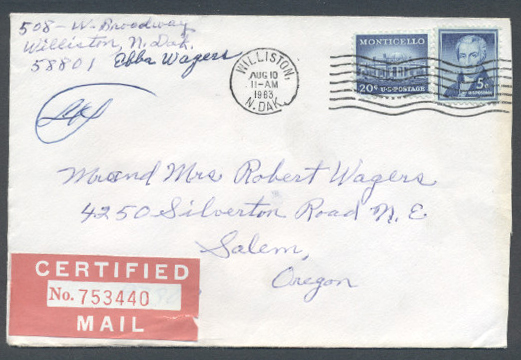 508 - W. Broadway
Williston, N. Dak.
58801 Ebba Wagers
WILLISTON,
AUG 10
11-AM
1963
N. DAK.
MONTICELLO
20¢ U.S. POSTAGE
5¢
Mr and Mrs Robert Wagers
4250 Silverton Road N. E.
Salem,
Oregon
CERTIFIED
No. 753440
MAIL